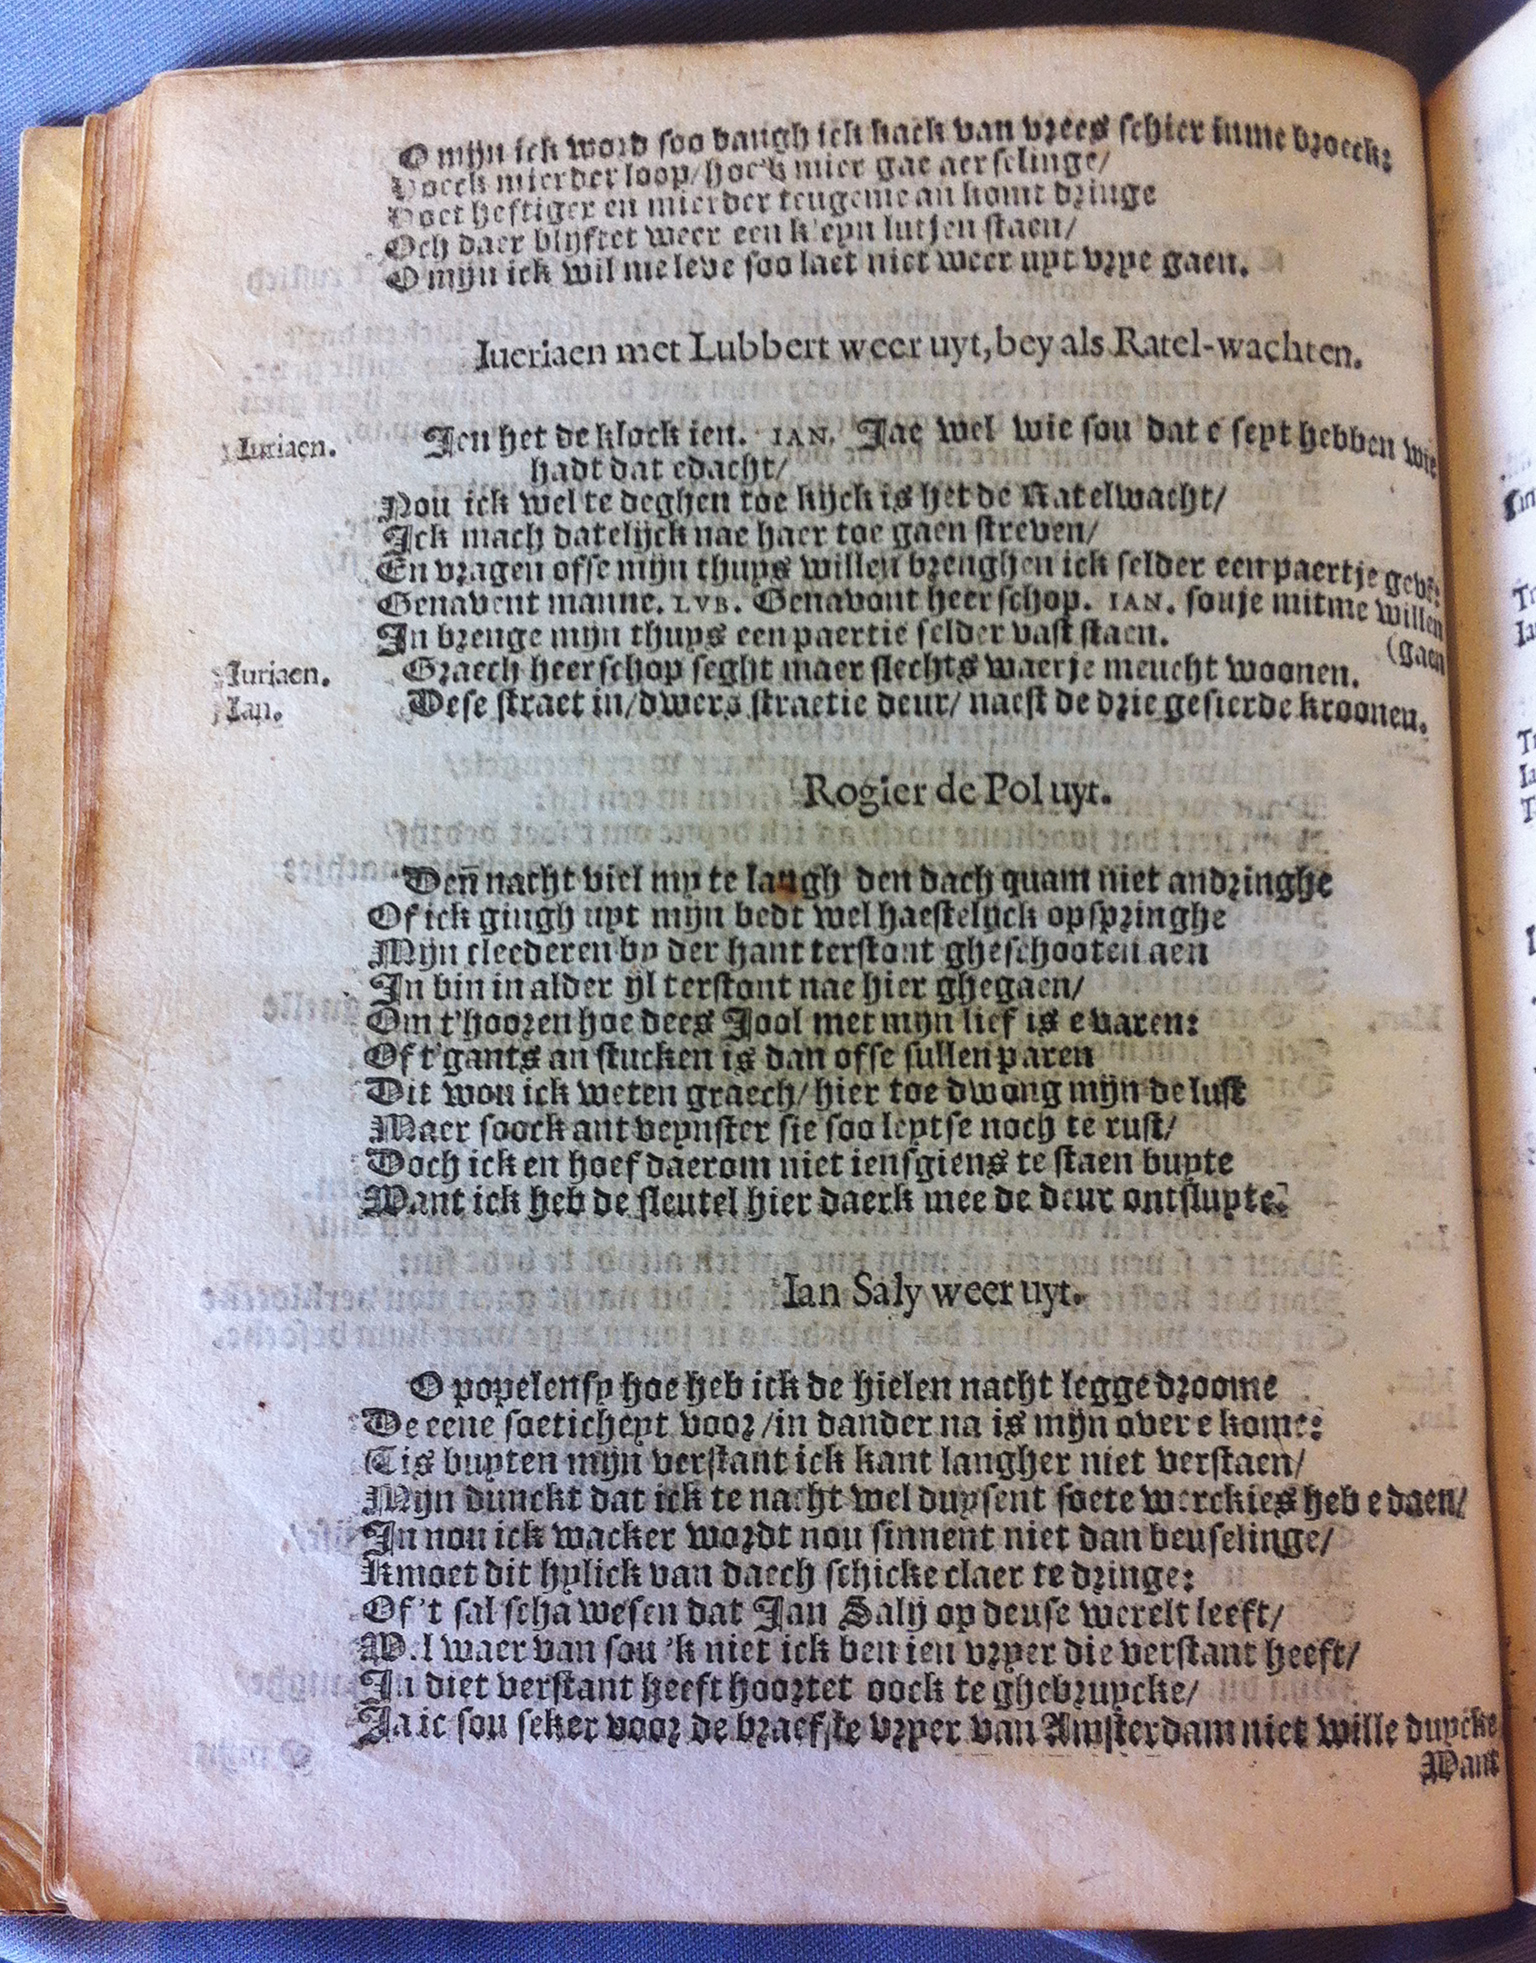 O mijn ick word soo bangh ick kack van vrees schier inme broeck:
Hoeck mierder loop/ hoe'k mier gae aerselinge/
Hoet heftiger en mierder teugeme an komt dringe
Och daer blijftet weer een kleyn lutjen staen/
O mijn ick wil me leve soo laet niet weer uyt vrye gaen.
Iueriaen met Lubbert weer uyt, bey als Ratel-wachten.
Iuriaen. Ien het de klock ien. IAN. Jae wel wie sou dat e seyt hebben wie
hadt dat edacht/
Nou ick wel te deghen toe kijck is het de Ratelwacht/
Ick mach datelijck nae haer toe gaen streven/
En vragen offe mijn thuys willen brenghen ick selder een paertje gevē:
Genavent manne. LVB. Genavont heerschop. IAN. souje mitme willen
(gaen
In brenge mijn thuys een paertie selder vast staen.
Iuriaen. Graech heerschop seght maer slechts waerje meucht woonen.
Ian. Dese straet in/ dwers straetie deur/ naest de drie gesierde kroonen.
Rogier de Pol uyt.
Deñ nacht viel my te langh den dach quam niet andringhe
Of ick gingh uyt mijn bedt wel haestelijck opspringhe
Mijn cleederen by der hant terstont gheschooten aen
In bin in alder ijl terstont nae hier ghegaen/
Om t'hooren hoe dees Jool met mijn lief is e varen:
Of t'gants an stucken is dan offe sullen paren
Dit wou ick weten graech/ hier toe dwong mijn de lust
Maer soock ant veynster sie soo leytse noch te rust/
Doch ick en hoef daerom niet iensgiens te staen buyte
Want ick heb de sleutel hier daerk mee de deur ontsluyte.
Ian Saly weer uyt.
O popelensy hoe heb ick de hielen nacht legge droome
De eene soeticheyt voor/ in dander na is mijn over e kome:
Tis buyten mijn verstant ick kant langher niet verstaen/
Mijn dunckt dat ick te nacht wel duysent soete werckies heb e daen/
In nou ick wacker wordt nou sinnent niet dan beuselinge/
Kmoet dit hylick van daech schicke claer te dringe:
Of 't sal scha wesen dat Jan Salij op deuse werelt leeft/
Wel waer van sou 'k niet ick ben ien vryer die verstant heeft/
In diet verstant heeft hoortet oock te ghebruycke/
Ja ic sou seker voor de braefste vryer van Amsterdam niet wille duycke
Want